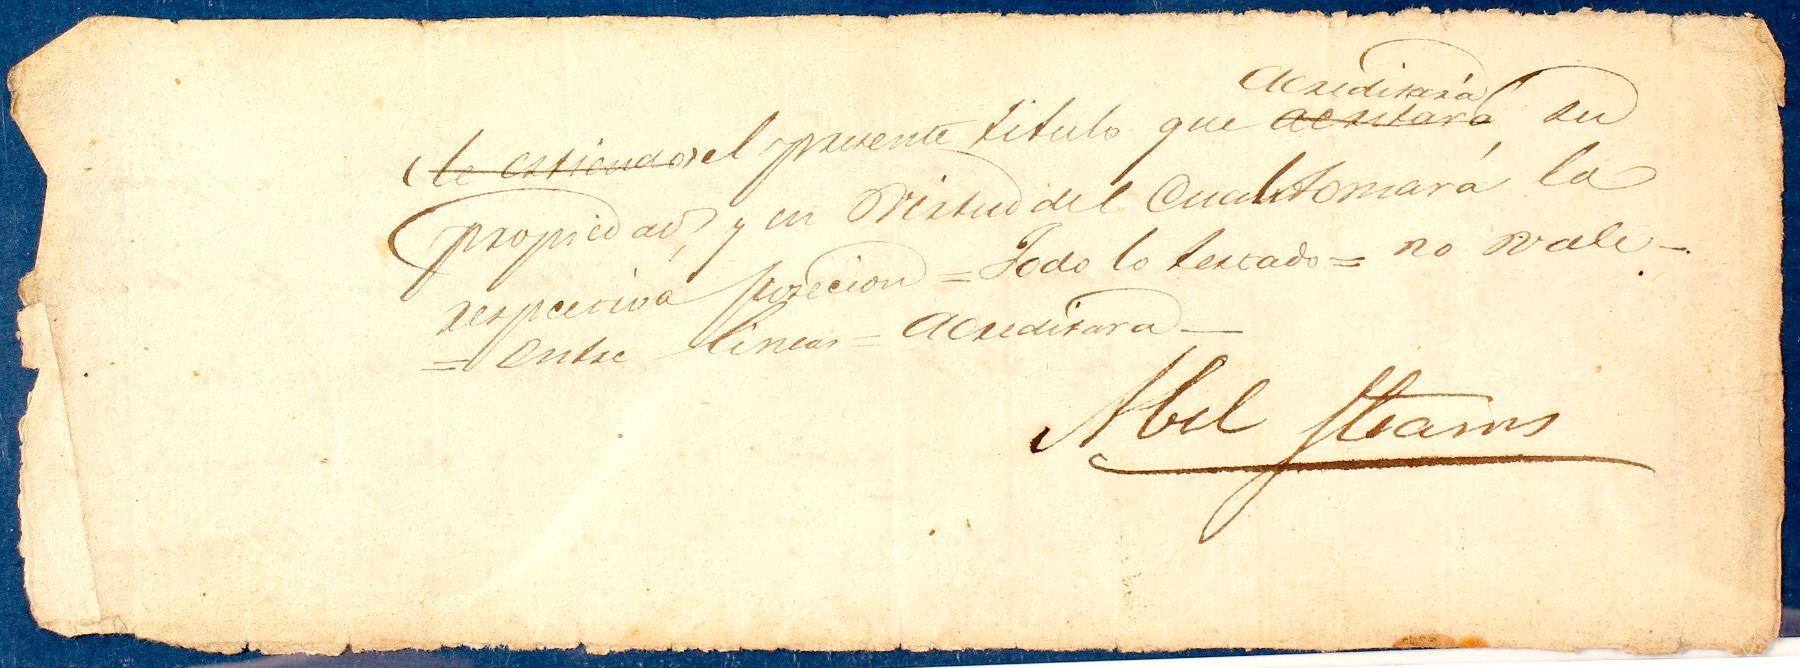 Acreditará
(le estiendo) el presente titulo que acritará su
propiedad, y en Virtud del Cual tomará la
respectiva pozecion = Todo lo textado = no vale –
= Entre lineas = Acreditara —
Abel Stearns